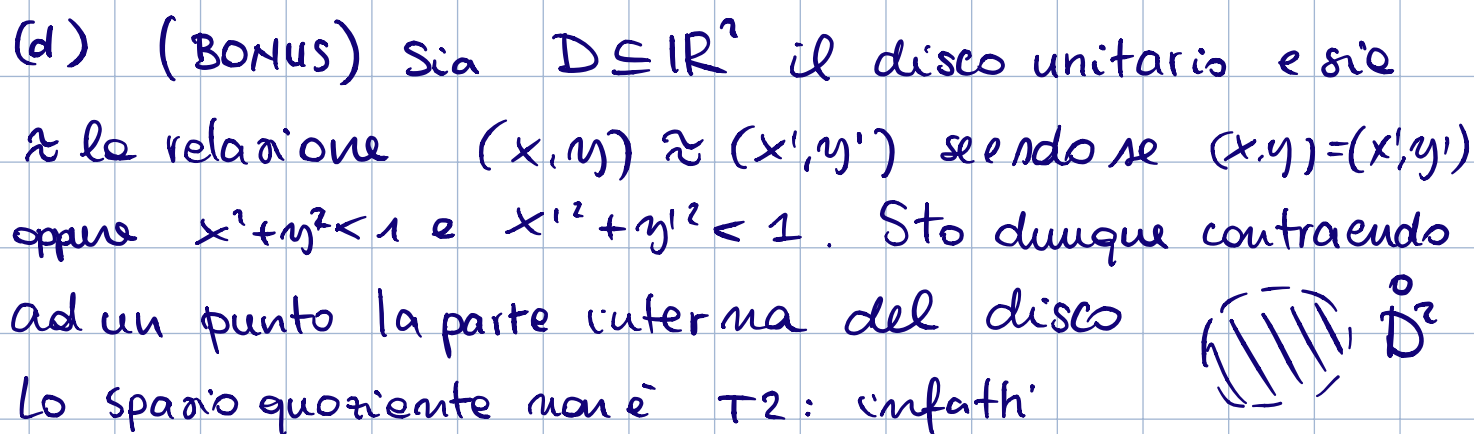 (d) (BONUS) Sia D ⊆ ℝ² il disco unitario e sia
≈ la relazione (x,y) ≈ (x',y') se e solo se (x,y)=(x',y')
oppure x²+y²<1 e x'²+y'²<1. Sto dunque contraendo
ad un punto la parte interna del disco D̊²
Lo spazio quoziente non è T2: infatti